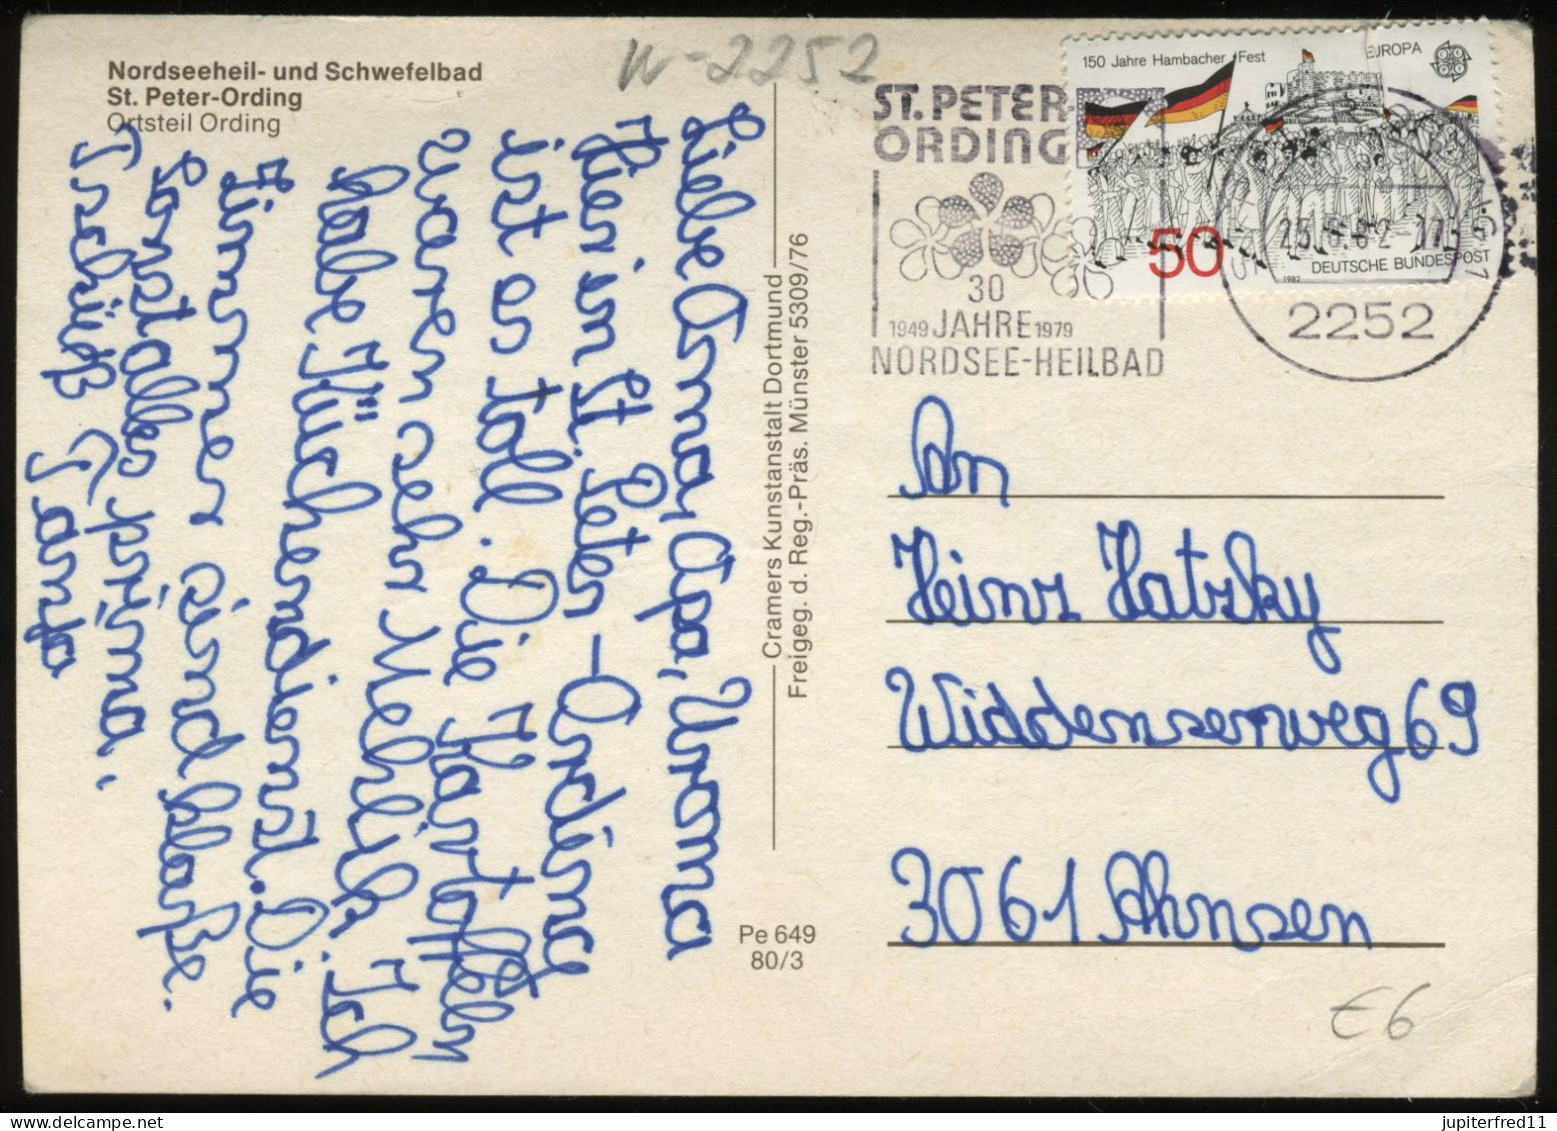 Nordseeheil- und Schwefelbad
St. Peter-Ording
Ortsteil Ording
W-2252
Liebe Oma, Opa, Uroma
Hier in St. Peter-Ording
ist es toll. Die Kartoffeln
waren sehr Mehlich. Ich
habe Küchendienst. Die
Zimmer sind klasse.
Sonst alles prima.
Tschüß Tanja
Cramers Kunstanstalt Dortmund
Freigeg. d. Reg.-Präs. Münster 5309/76
Pe 649
80/3
ST. PETER-
ORDING
30
1949 JAHRE 1979
NORDSEE-HEILBAD
150 Jahre Hambacher Fest
EUROPA
50
1982
DEUTSCHE BUNDESPOST
2252
An
Heinz Hatzky
Widdenserweg 69
3061 Ahnsen
€6
jupiterfred11